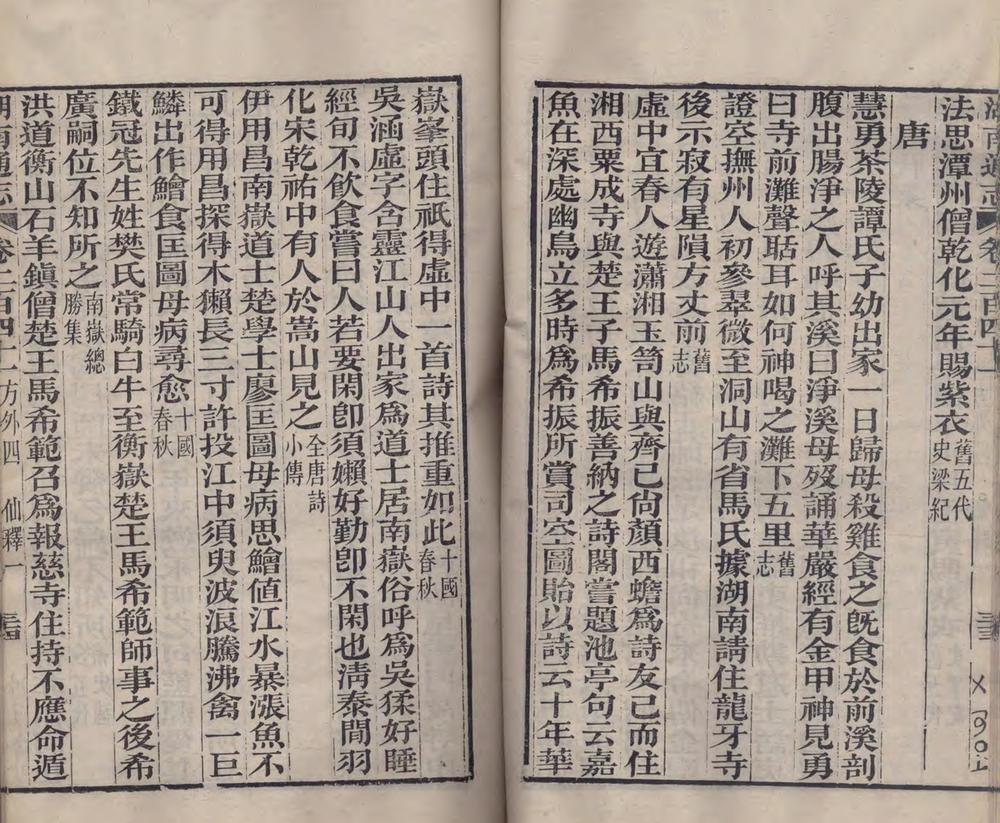 湖南通志 卷二百四十一
法思潭州僧乾化元年賜紫衣舊五代史梁紀
唐
慧勇茶陵譚氏子幼出家一日歸母殺雞食之旣食於前溪剖
腹出腸淨之人呼其溪曰淨溪母歿誦華嚴經有金甲神見勇
曰寺前灘聲聒耳如何神喝之灘下五里舊志
證空撫州人初參翠微至洞山有省馬氏據湖南請住龍牙寺
後示寂有星隕方丈前舊志
虛中宜春人遊瀟湘玉笥山與齊己尙顏西蟾爲詩友已而住
湘西粟成寺與楚王子馬希振善納之詩閣嘗題池亭句云嘉
魚在深處幽鳥立多時爲希振所賞司空圖貽以詩云十年華
嶽峯頭住祇得虛中一首詩其推重如此十國春秋
吳涵虛字含靈江山人出家爲道士居南嶽俗呼爲吳猱好睡
經旬不飲食嘗曰人若要閑卽須嬾好勤卽不閑也淸泰間羽
化宋乾祐中有人於嵩山見之全唐詩小傳
伊用昌南嶽道士楚學士廖匡圖母病思鱠值江水暴漲魚不
可得用昌探得木獺長三寸許投江中須臾波浪騰沸禽一巨
鱗出作鱠食匡圖母病尋愈十國春秋
鐵冠先生姓樊氏常騎白牛至衡嶽楚王馬希範師事之後希
廣嗣位不知所之南嶽總勝集
洪道衡山石羊鎭僧楚王馬希範召爲報慈寺住持不應命遁
湖南通志 卷二百四十一 方外四 仙釋一